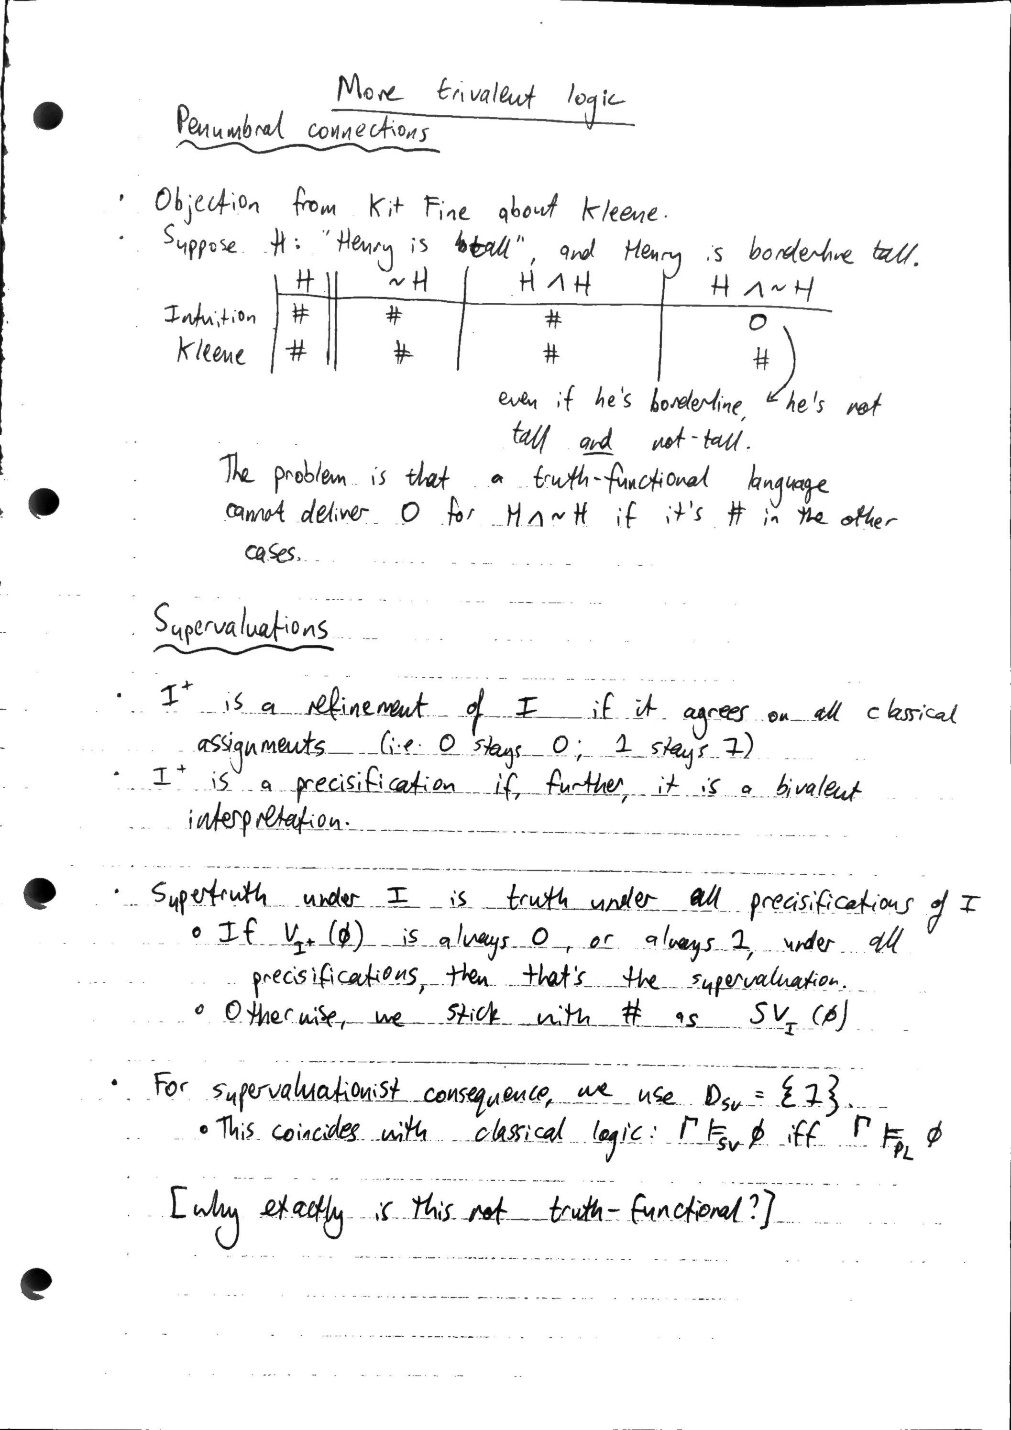 More trivalent logic
Penumbral connections
· Objection from Kit Fine about Kleene.
· Suppose H: "Henry is tall", and Henry is borderline tall.
H ~H H ∧ H H ∧ ~H
Intuition # # # 0
Kleene # # # #
even if he's borderline, he's not
tall and not-tall.
The problem is that a truth-functional language
cannot deliver 0 for H ∧ ~H if it's # in the other
cases.
Supervaluations
· I⁺ is a refinement of I if it agrees on all classical
assignments (i.e. 0 stays 0; 1 stays 1)
· I⁺ is a precisification if, further, it is a bivalent
interpretation.
· Supertruth under I is truth under all precisifications of I
∘ If V_I⁺(ϕ) is always 0, or always 1, under all
precisifications, then that's the supervaluation.
∘ Otherwise, we stick with # as SV_I(ϕ)
· For supervaluationist consequence, we use D_SV = {1}.
• This coincides with classical logic: Γ ⊨_SV ϕ iff Γ ⊨_PL ϕ
[why exactly is this not truth-functional?]